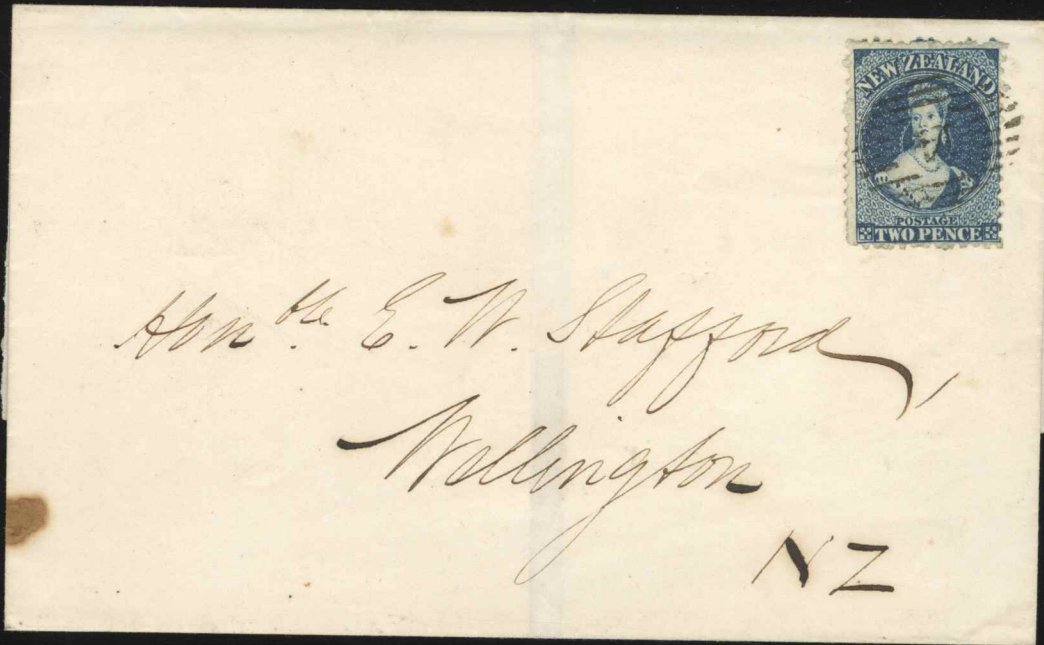 NEW ZEALAND
POSTAGE
TWO PENCE
Honble. E. W. Stafford,
Wellington
NZ